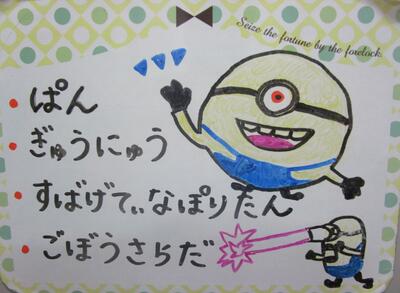 Seize the fortune by the forelock.
・ぱん
・ぎゅうにゅう
・すばげてぃなぽりたん
・ごぼうさらだ